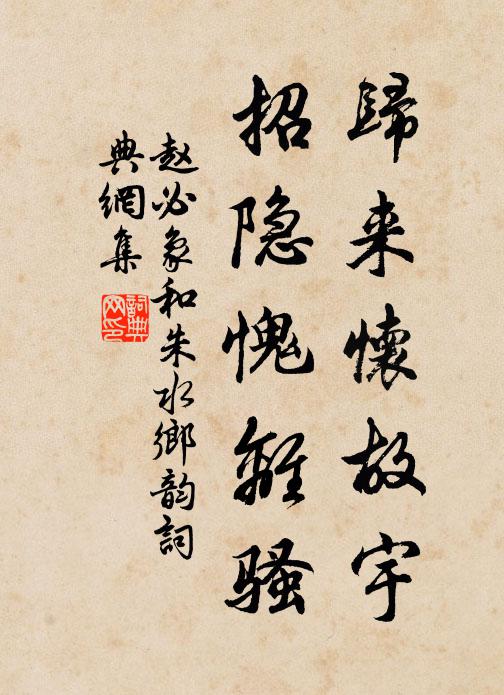 歸来懷故宇
招隐愧離骚
赵必象和朱水鄉韵詞
典網集
詞典网印